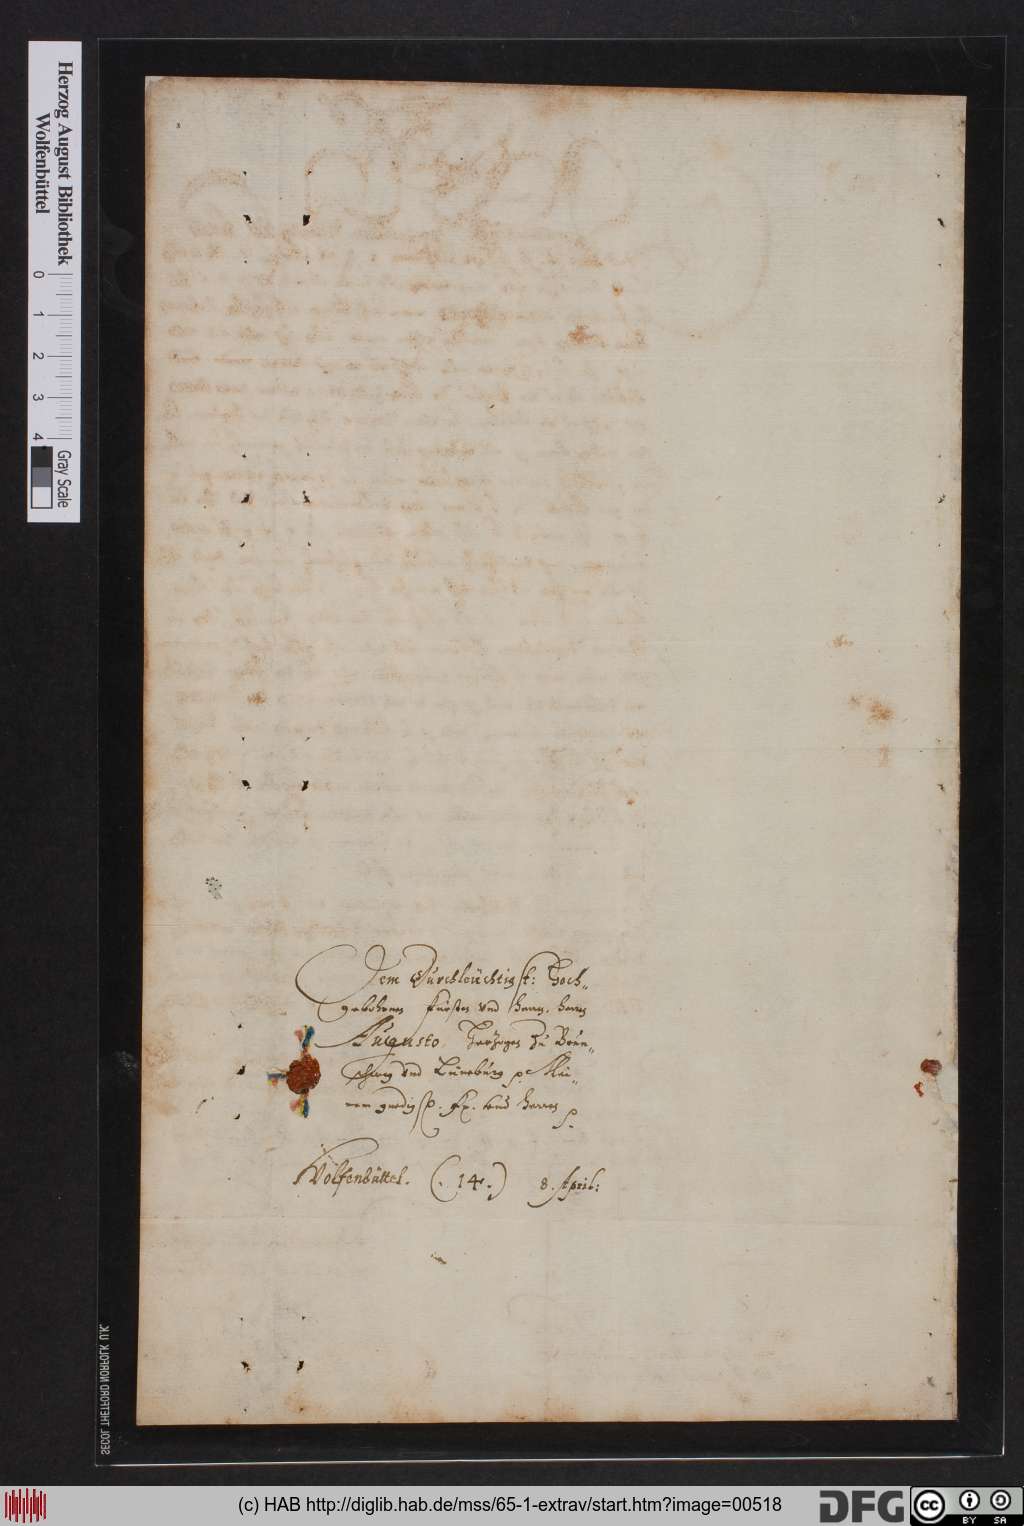 Herzog August Bibliothek
Wolfenbüttel
0 1 2 3 4
Gray Scale
Dem Durchleüchtigst: Hoch„
gebohrnen Fürsten vnd Herrn, Herrn
Augusto, Hertzogen zu Braun„
schweig vnd Lüneburg p. Mei„
nem gnedigst. vnd Herren
Wolfenbüttel. (. 14.) 8. April:
SEGEL THETFORD NORFOLK U.K.
(c) HAB http://diglib.hab.de/mss/65-1-extrav/start.htm?image=00518
DFG
cc
BY SA